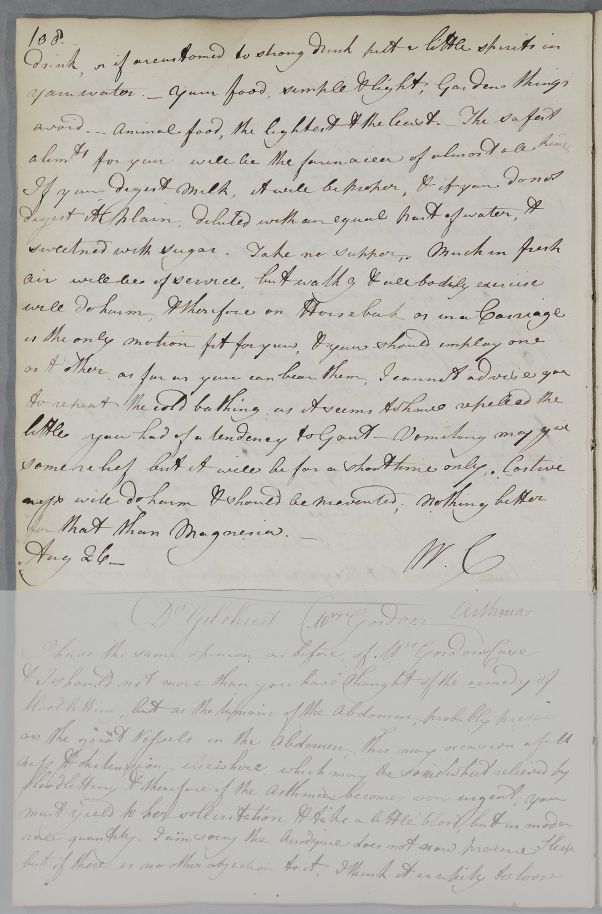 108.
drink, or if accustomed to strong drink put a little spirits in
your water. — your food, simple & light, Garden things
avoid. — animal food, the lightest & the least. — The safest
alimts for you will be the farinacea of almost all kinds
If you digest milk, it will be proper, & if you do not
digest it plain, diluted with an equal part of water, &
sweetned with sugar. Take no supper. Much in fresh
air will be of service, but walkg & all bodily exercise
will do harm, & therefore on Horseback or in a Carriage
is the only motion fit for you, & you should employ one
or t' other as far as you can bear them, I cannot advise you
to repeat the cold bathing as it seems to have repelled the
little you had of a tendency to Gout — Vomiting may give
some relief but it will be for a short time only. Costive
ness will do harm & should be prevented, nothing better
for that than Magnesia. —
Aug 26 — W. C
Dr Gilchrist (Mrs Gordon Asthma
I have the same opinion as before, of Mrs Gordons Case
& I should not more than you have thought of the remedy of
bloodletting, but as the tumour of the Abdomen, probably presses
on the great Vessels in the Abdomen, this may occasion a full
ness & distension elsewhere which may be somewhat relieved by
bloodletting & therefore if the Asthma becomes urgent, you
must yield to her sollicitation & take a little blood, but in mode
rate quantity. I am sorry the Anodyne does not now procure Sleep
but if there is no other objection to it, I think it is likely to loose